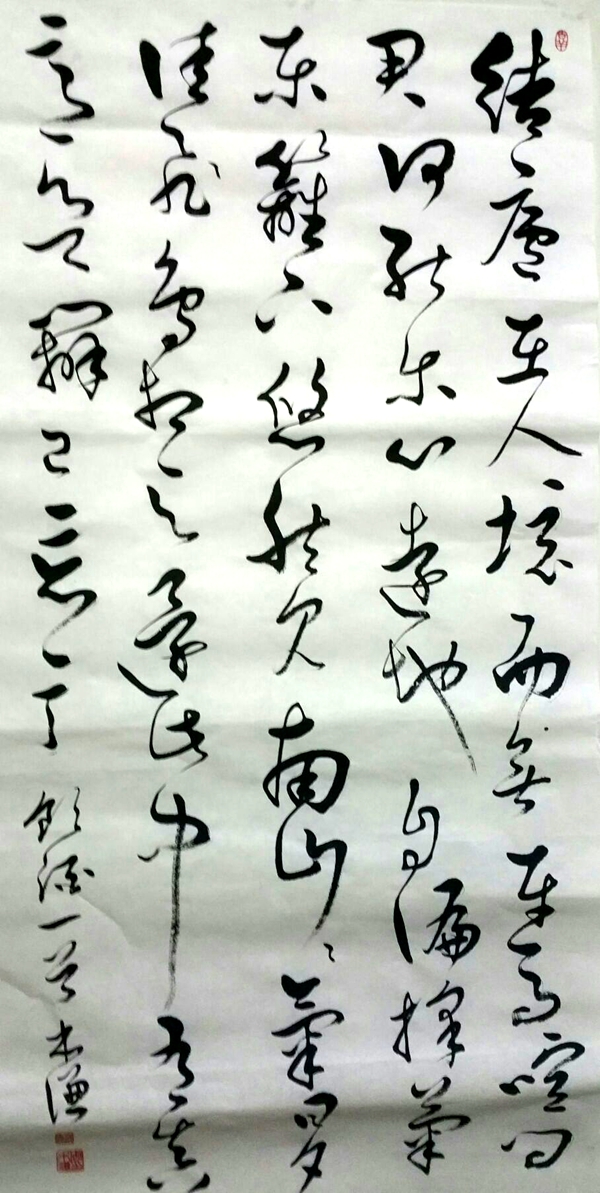 結廬在人境而無車馬喧问
君何能尔心遠地自偏採菊
东籬下悠然见南山々氣日夕
佳飛鳥相与還此中有真
意欲辯已忘言 飲酒一首 木谦